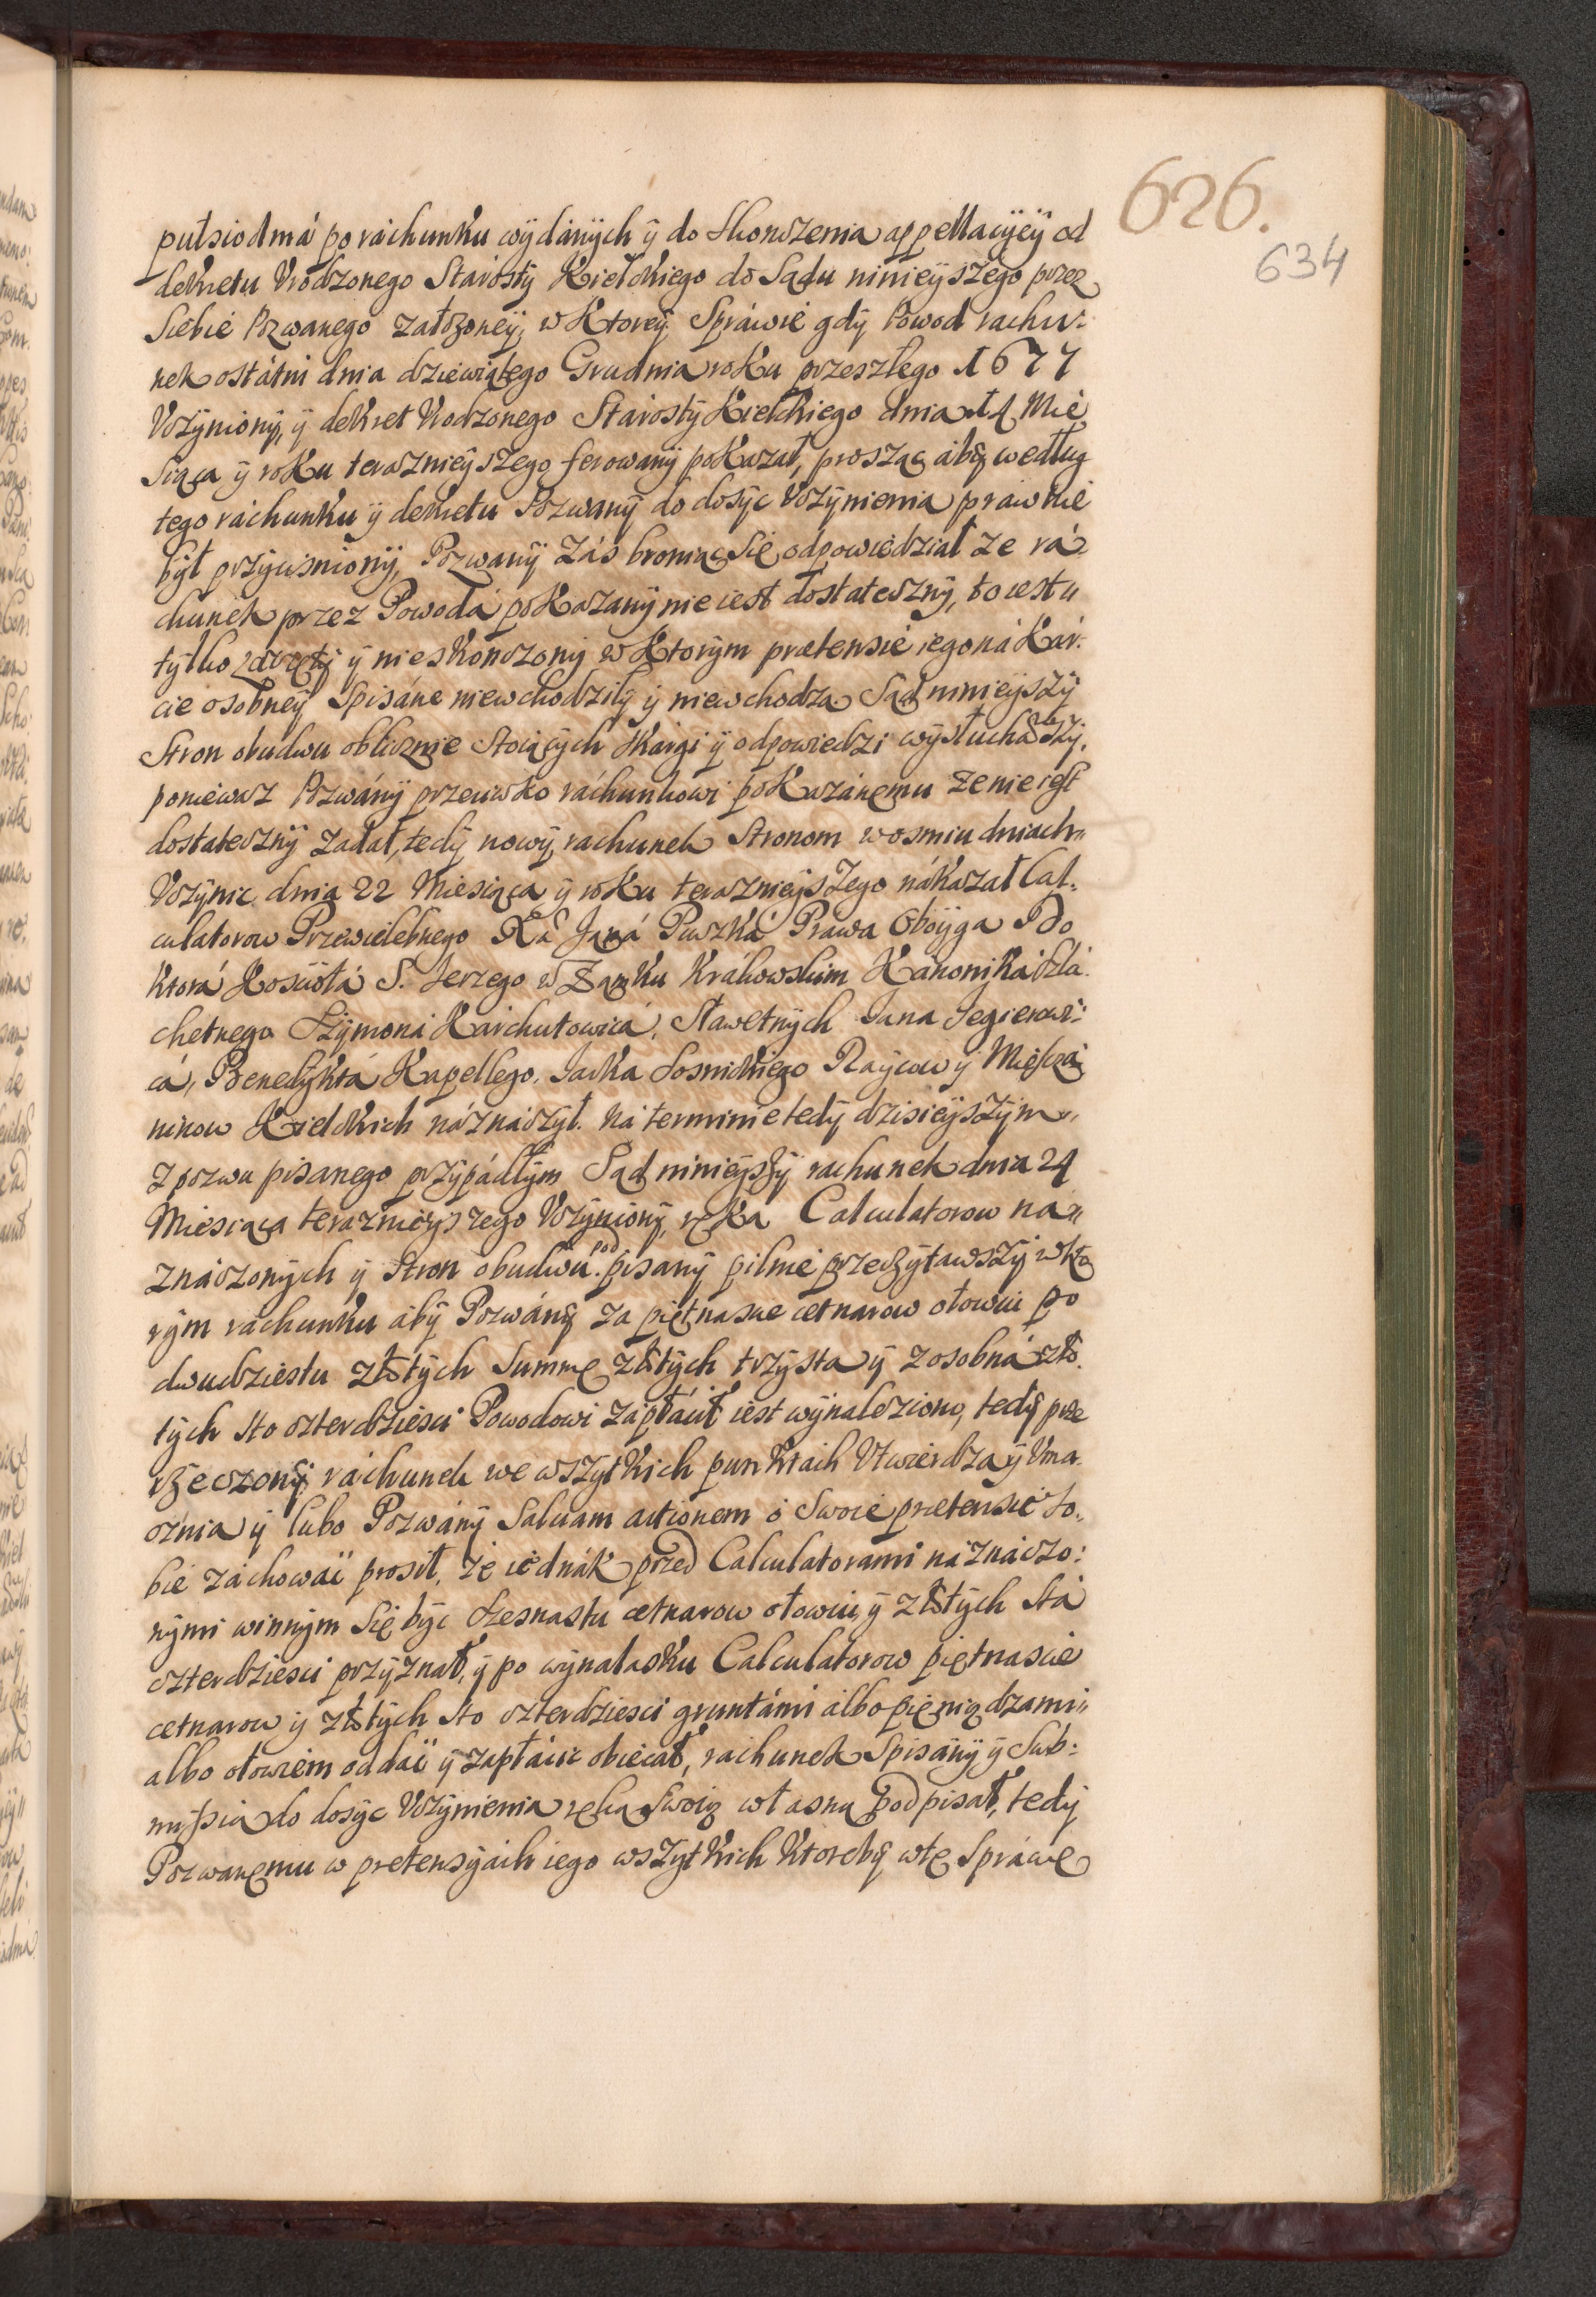 626.
634
pułsiodmá po ráchunku wydánych ÿ do skonczenia appellacyey od
dekretu Vrodzonego Stárosty Kieleckiego do Sądu ninieyszego przez
Siebie Pozwanego założoneÿ, w Ktoreÿ Spráwie gdÿ Powod rachu:
nek ostátni dnia dziewiątego Grudnia roku przeszłego 1677
Vczÿnionÿ, ÿ dekret Vrodzonego Stárostÿ Kieleckiego dnia 14 Mie
siąca ÿ roku terazniejszego ferowanÿ pokazał, prosząc ábÿ według
tego ráchunku ÿ dekretu Pozwanÿ do dosÿc Vczÿnienia prawnie
bÿł przÿcisnionÿ, Pozwanÿ záś broniąc się odpowiedział że rá:
chunek przez Powodá pokazanÿ nie iest dostatecznÿ, to iest
tÿlko zaczętÿ ÿ nieskonczonÿ w Ktorÿm prætensie iego ná Kár:
cie osobneÿ Spisáne niewchodziłÿ ÿ niewchodzą. Sąd ninieÿszÿ
Stron obudwu oblicznie stoiącÿch skárgi ÿ odpowiedzi wÿsłuchawszÿ,
ponieważ Pozwánÿ przeciwko ráchunkowi pokazánemu że nie iest
dostatecznÿ zadał, tedÿ nowÿ rachunek Stronom w osmiu dniach
Vczÿnic dnia 22 Miesiąca ÿ roku terazniejszego nákazał Cal:
culatorow Przewielebnego Xa Janá Puszká Prawa Oboÿga Do
ktorá Kosciołá S. Jerzego w Zamku Krákowskim Kánoniká Szla:
chetnego Szÿmoná Kárchutowicá, Sławetnÿch Jana Jegierowi:
cá, Benedÿktá Kapellego, Jacka Sosnickiego Raÿcow ÿ Miesczá
ninow Kieleckich náznaczÿł. Ná terminie tedÿ dzisieÿszÿm
z pozwu pisanego przÿpádłÿm Sąd ninieÿszÿ rachunek dnia 24
Miesiąca teraznieÿszego Vczÿnionÿ, ręką Calculatorow na
znáczonÿch ÿ Stron obudwu podpisanÿ pilnie przeczÿtawszÿ w Kto
rÿm ráchunku abÿ Pozwánÿ za piętnascie cetnarow ołowiu po
dwudziestu złotÿch Summę złotÿch trzÿsta ÿ z osobná zło:
tÿch sto czterdziesci Powodowi zapłácił iest wÿnaleziono, tedÿ prze
rzeczonÿ ráchunek we wszÿtkich punktách Vtwierdza ÿ Vma
cznia ÿ lubo Pozwánÿ Salvam actionem o Swoie prætensie So:
bie záchowáć prosił, że iednák przed Calculatorami náznáczo:
nÿmi winnÿm się bÿc szesnastu cetnarow ołowiu ÿ złotÿch Stá
czterdziesci przÿznał, ÿ po wÿnalasku Calculatorow piętnascie
cetnarow ÿ złotÿch sto czterdziesci gruntámi albo pięniędzami
albo ołowiem oddáć ÿ zapłácic obiecał, rachunek Spisánÿ ÿ Sub:
missią do dosÿc Vczÿnienia ręką Swoią własną podpisał, tedÿ
Pozwanemu w pretensÿách iego wszÿtkich Ktorebÿ w tę Spráwę